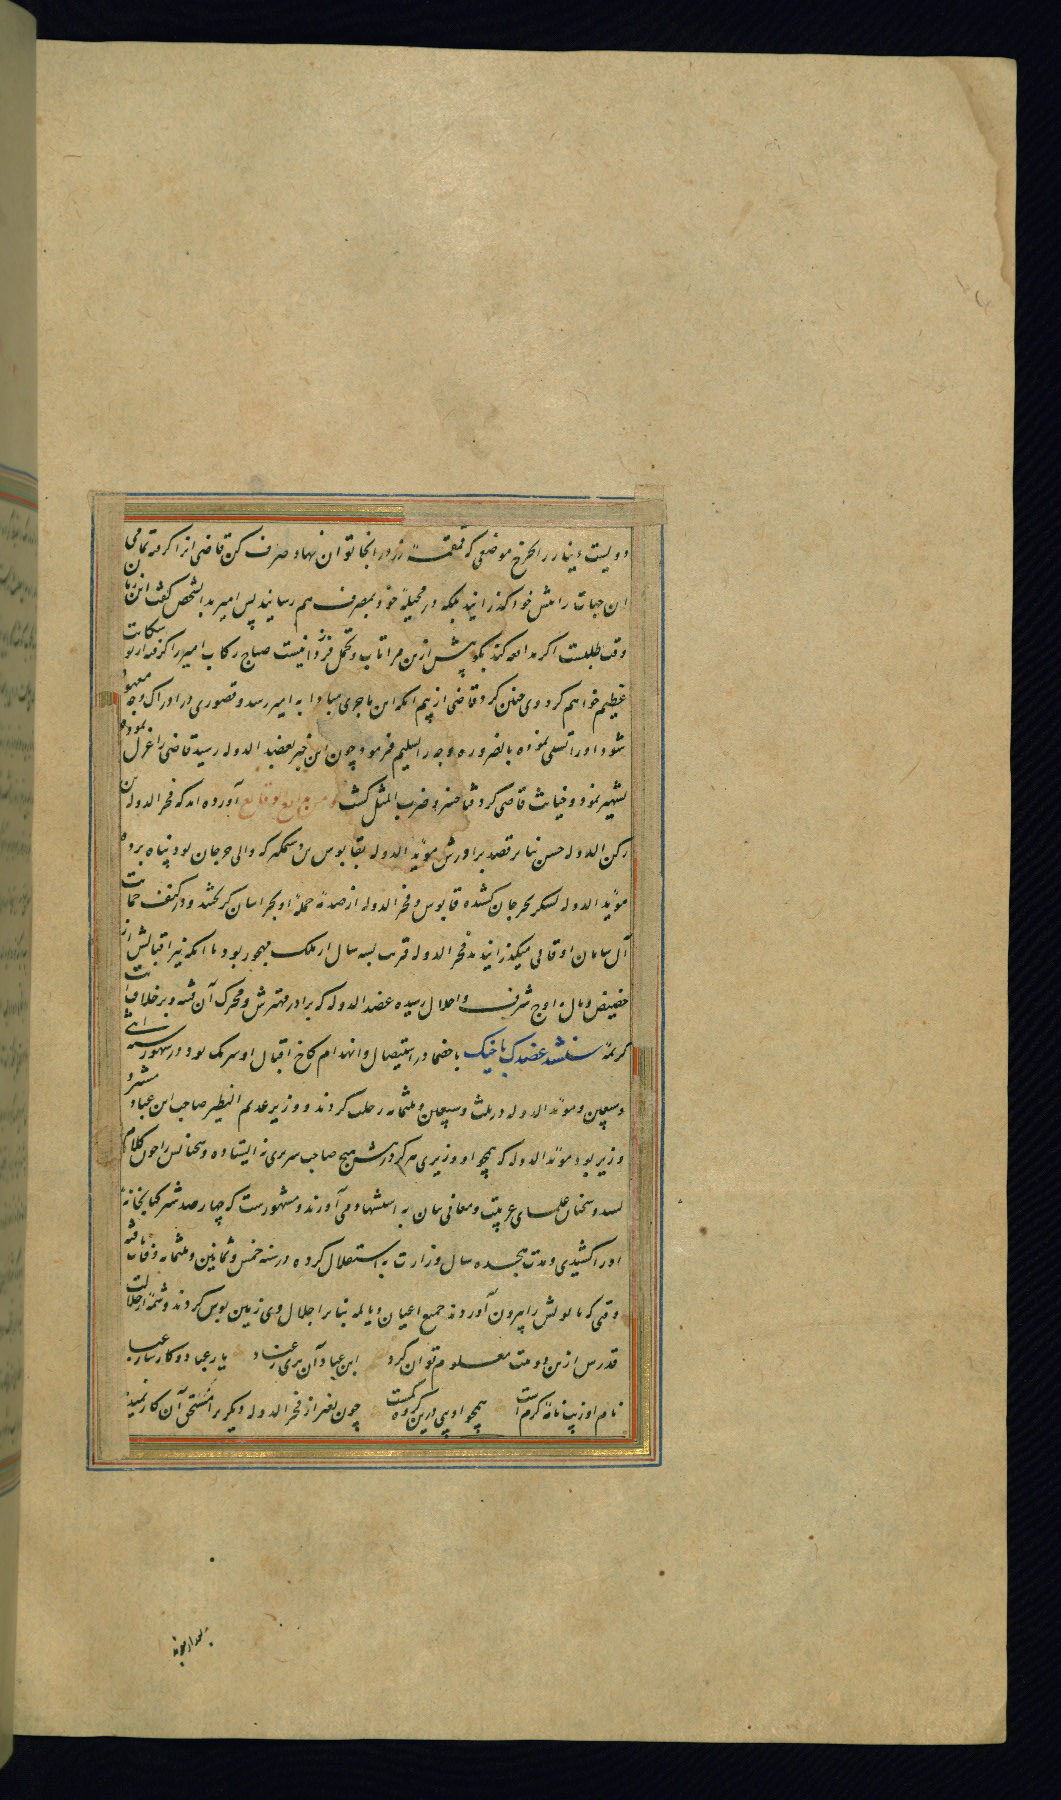 دویست دینار را خرج موضعی که قمقمه زر در انجا توان نهاد صرف کن قاضی انرا گرفته تمامی
ان جهات را پیش خود گذرانید بلکه در مخیلهٔ خود بمصرف هم رسانید پس امیر بدان شخص گفت این زمان
وقت طلبست اگر مدافعه کند بگو پیش ازین مرا تاب و تحمل فرو ماند نیست صباح رکاب امیر را گرفته از تو شکایت
عظیم خواهم کرد وی چنین کرد قاضی از بیم انکه این ماجری مبادا به امیر رسد و قصوری در ادراک وجه معهود
شود او را تسلی نموده بالضروره وجه را تسلیم فرمود چون این خبر بعضد الدوله رسید قاضی را عزل نموده
تشهیر نمود و خیانت قاضی کرد و ضرب المثل گشت و من بدایع الوقایع آورده اند که فخر الدوله بن
رکن الدوله حسن بنابر قصد برادرش موید الدوله بقابوس بن وشمگیر که والی جرجان بود پناه برده
موید الدوله لشکر بجرجان کشیده قابوس و فخر الدوله از صدمهٔ حملهٔ او بخراسان گریختند و در کنف حمایت
آل سامان اوقاتی میگذرانیدند فخر الدوله قریب بسه سال از ملک مهجور بود تا انکه نیر اقبالش از
حضیض وبال باوج شرف و اجلال رسیده عضد الدوله که برادر مهترش و محرک آن فتنه و برخلاف
کریمهٔ سنشد عضدک باخیک با خصما در استیصال و انهدام کاخ اقبال او شریک بود در شهور سنه اثنی
و سبعین و موید الدوله در ثلث و سبعین و ثلثمایه رحلت کردند و وزیر عدیم النظیر صاحب ابن عباد
وزیر بود موید الدوله که همچو او وزیری هرگز در پیش هیچ صاحب سریری نه ایستاده و سخنانش را چون کلام
و سخنان علمای عربیت و معانی بیان به استشهاد می آورند و مشهورست که چهار صد شتر کتابخانهٔ
او را کشیدی و مدت هجده سال وزارت به استقلال کرده در سنه خمس و ثمانین و ثلثمایه وفات یافته
وقتی که تابوتش را بیرون آوردند جمیع اعیان دیالمه بنابر اجلال وی زمین بوس کردند و شمهٔ از جلالت
قدرش ازین دو بیت معلوم توان کرد ابن عباد آن بری ز عناد یار عباد و کارساز عباد
نام او زیب نامهٔ کرم است همچو اویی درین گروه کمست چون بغیر از فخر الدوله دیگر برا مستحق آن کار ندید